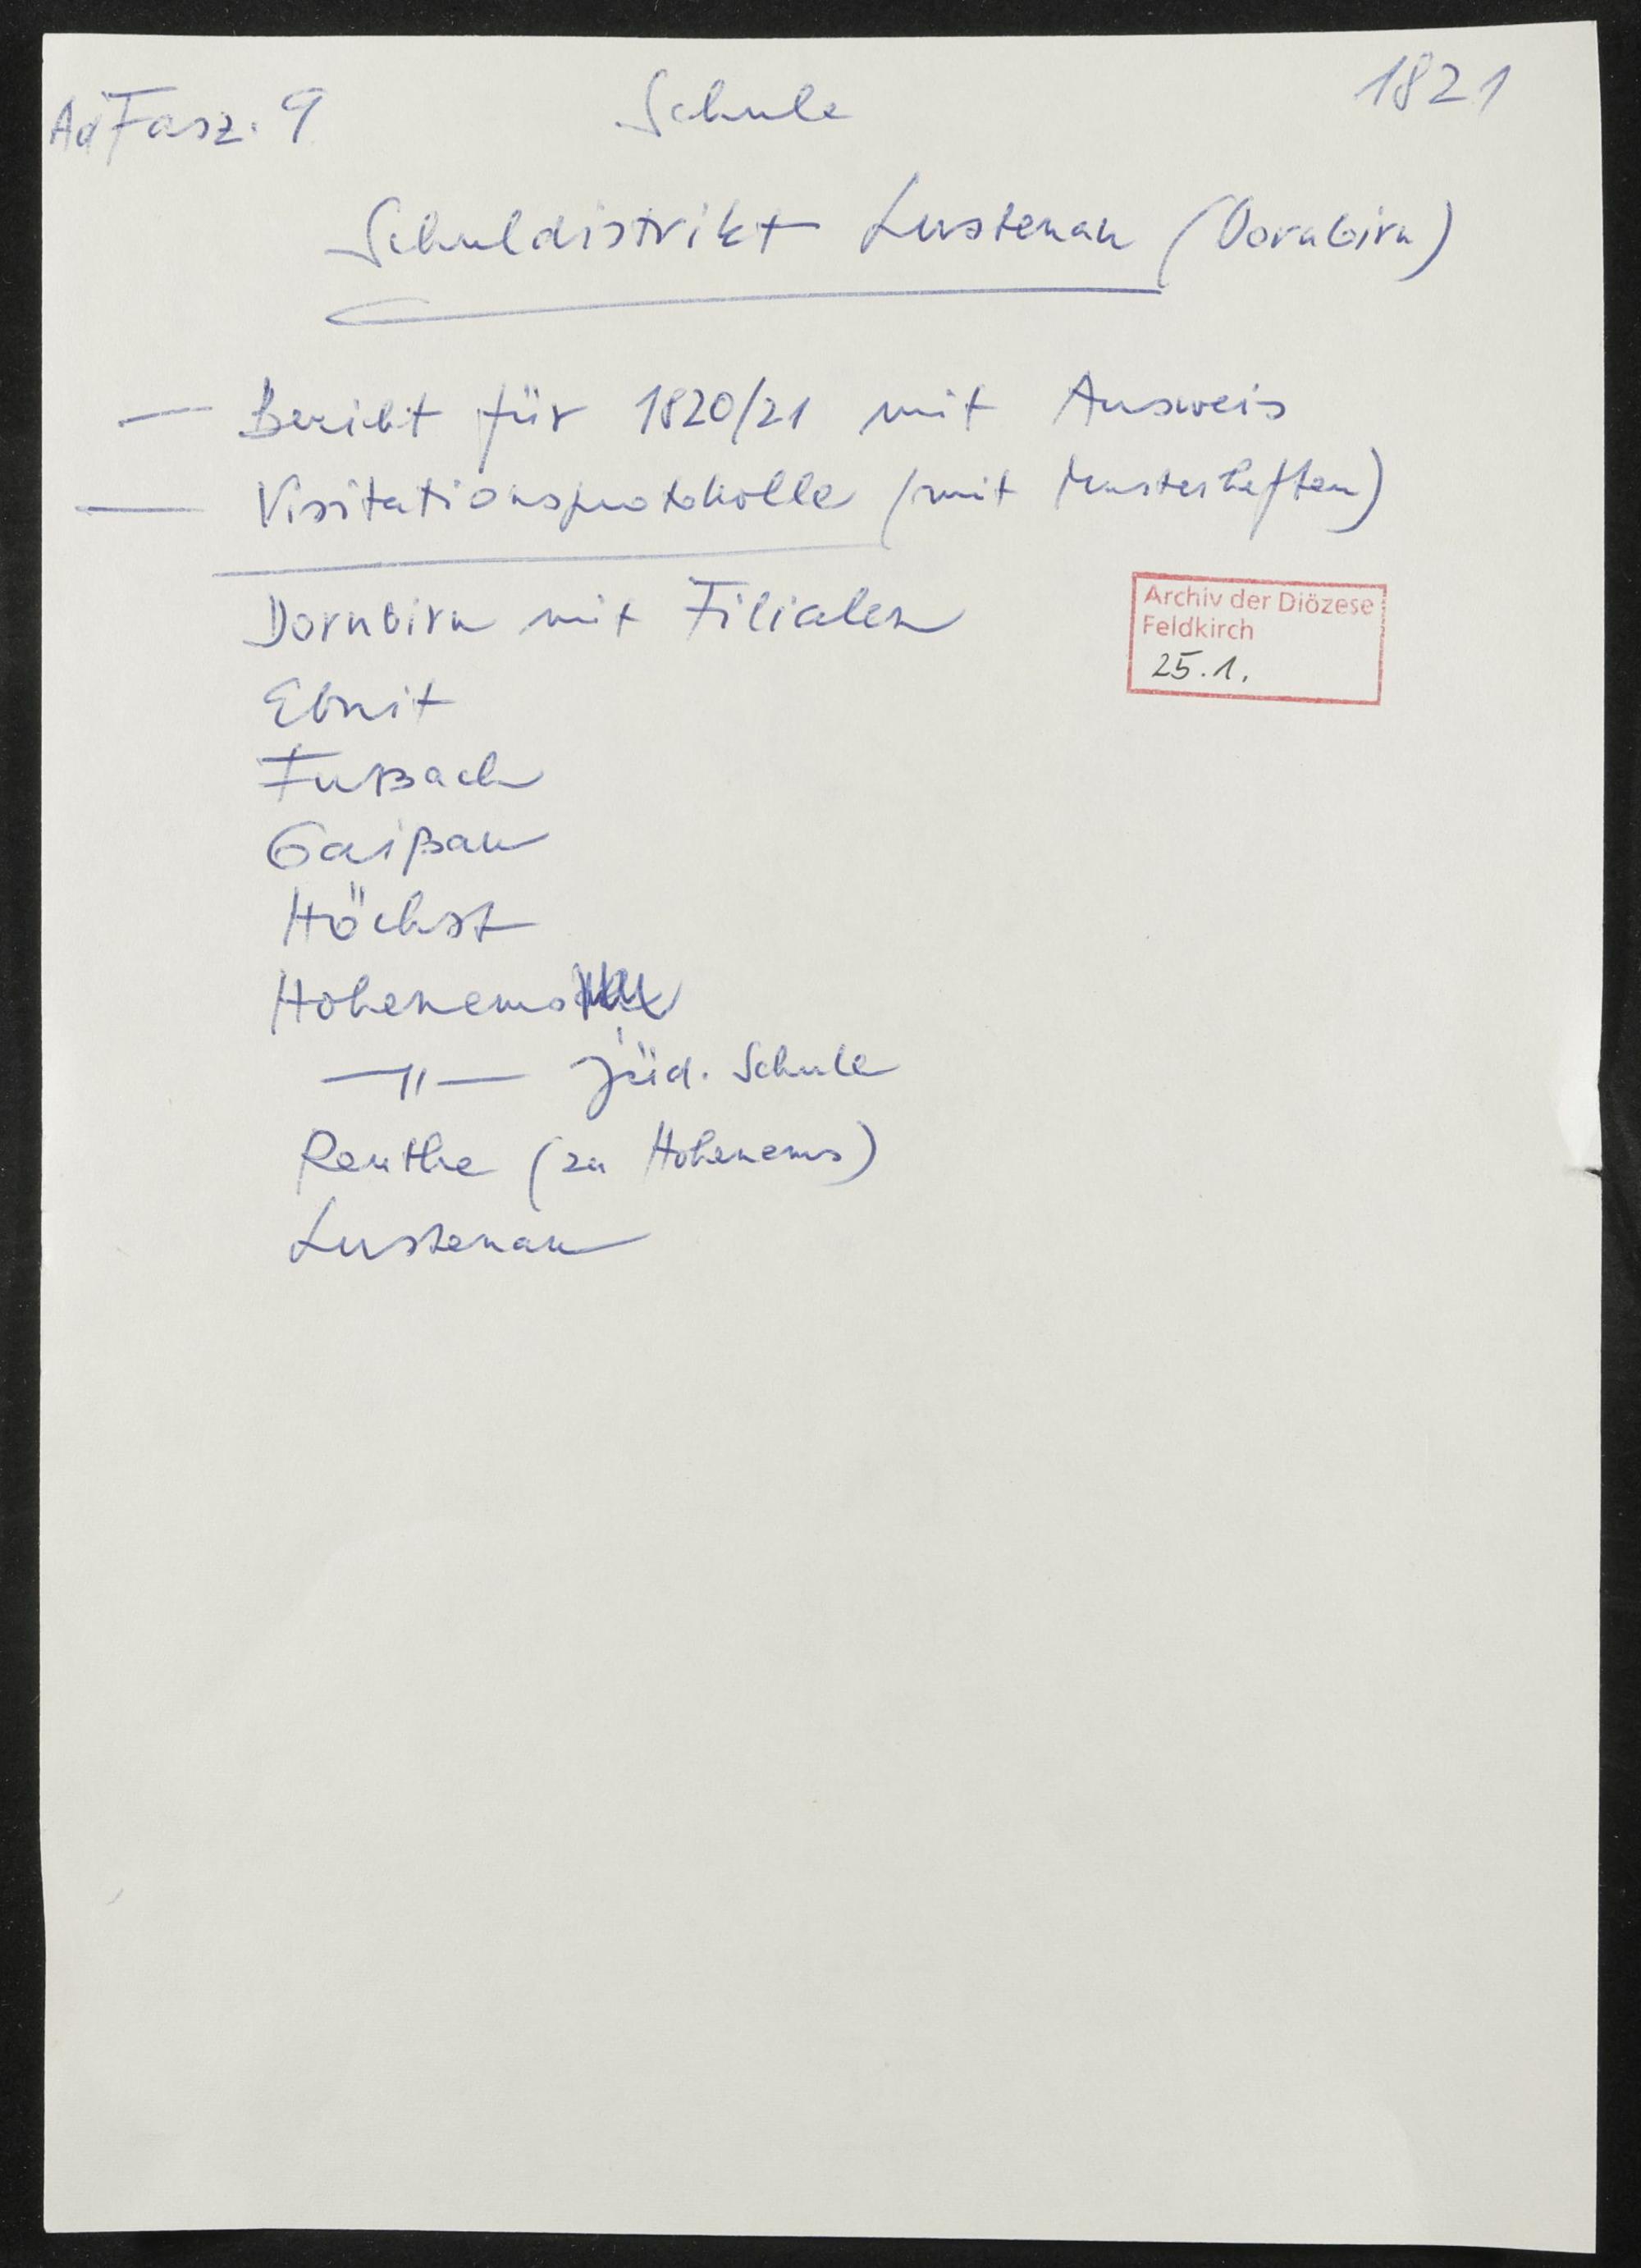 Ad Fasz. 9 Schule 1821
Schuldistrikt Lustenau (Dornbirn)
— Bericht für 1820/21 mit Ausweis
— Visitationsprotokolle (mit Musterheften)
Dornbirn mit Filialen
Archiv der Diözese
Feldkirch
25.1.
Ebnit
Fußach
Gaißau
Höchst
Hohenems
—"— jüd. Schule
Reuthe (zu Hohenems)
Lustenau